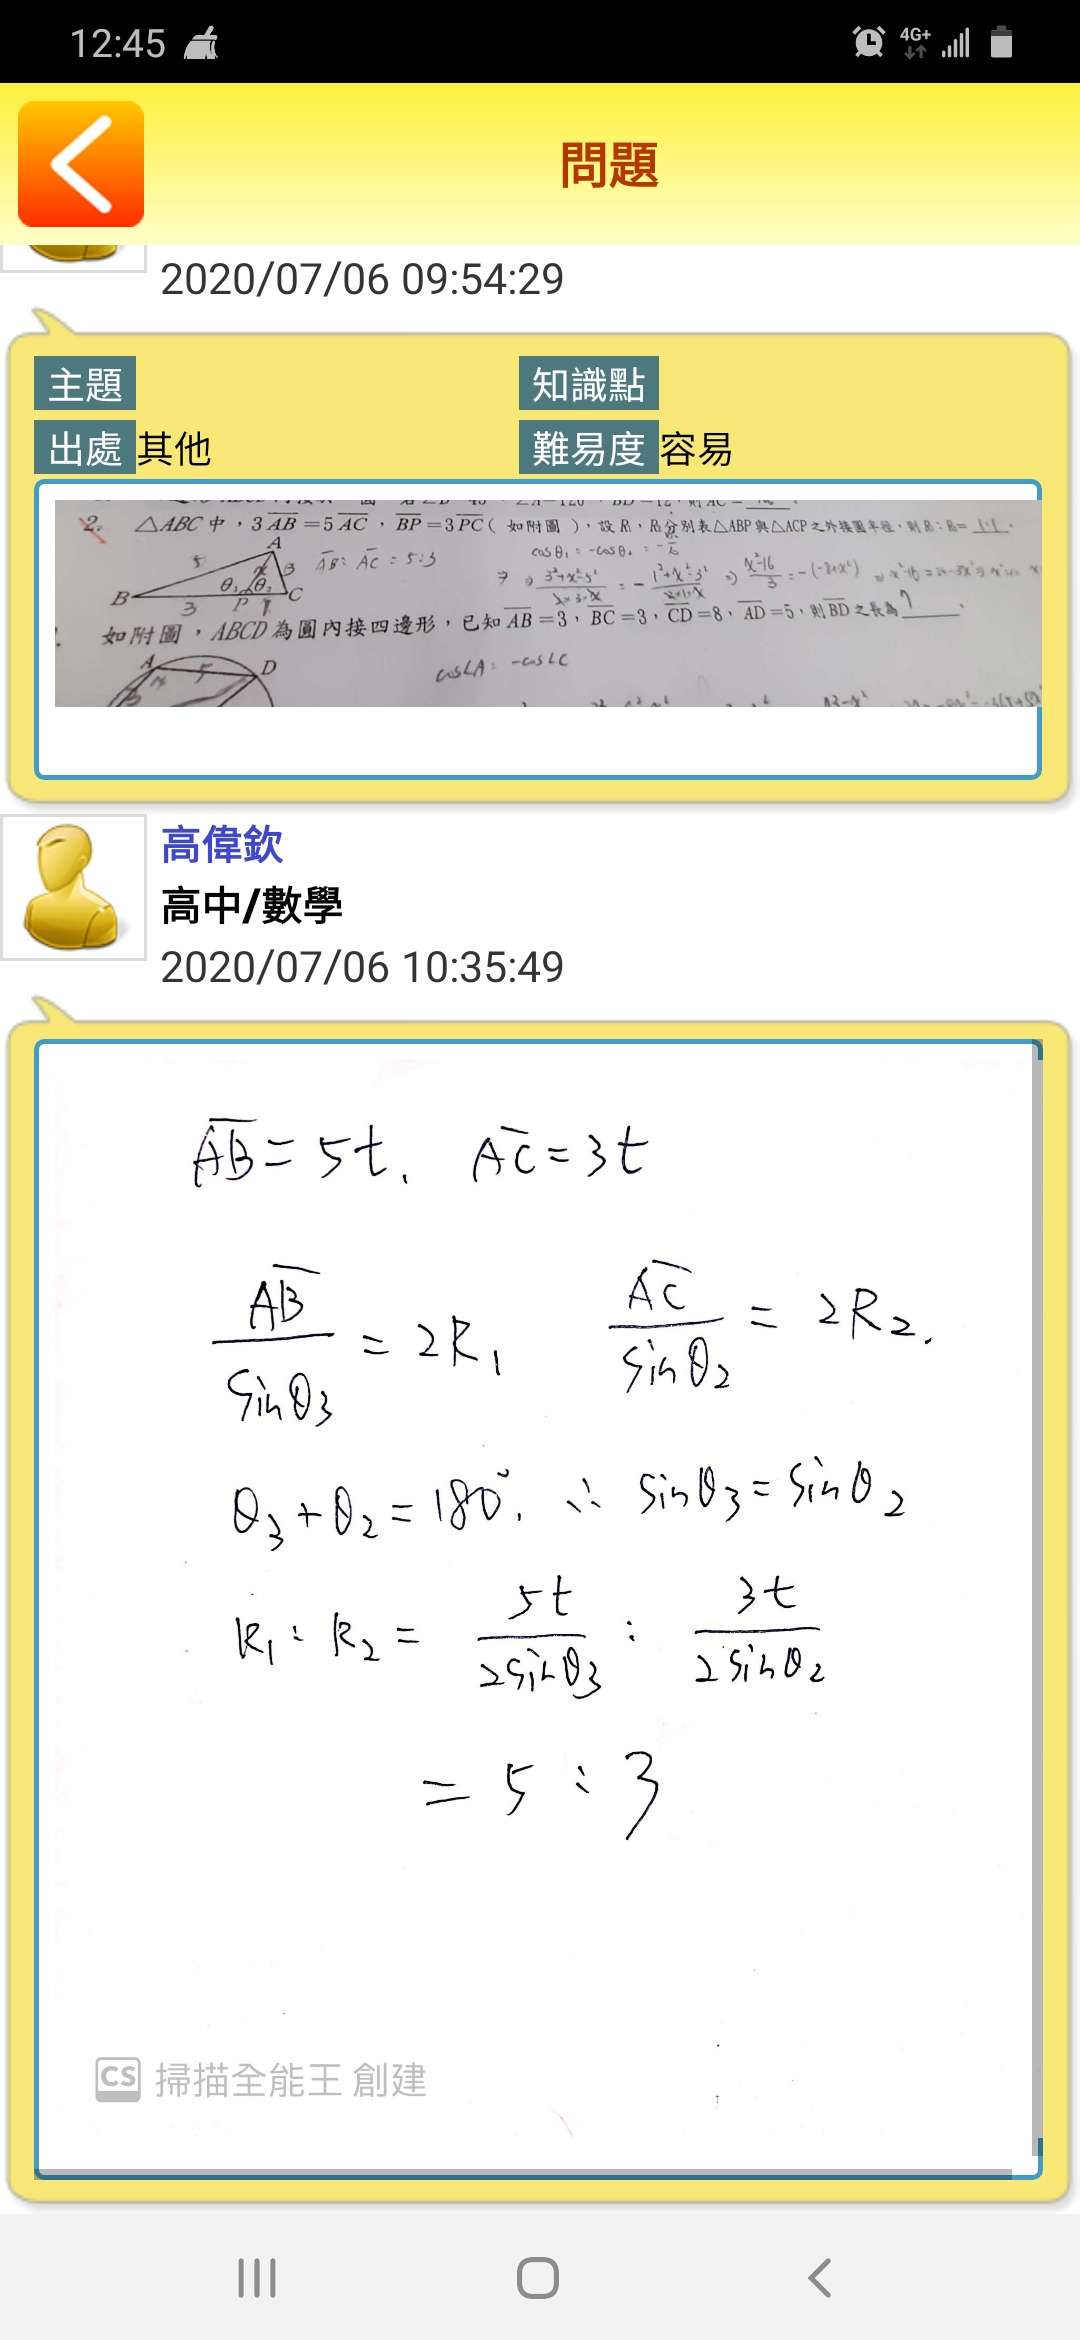 12:45 4G+
問題
2020/07/06 09:54:29
主題 知識點
出處 其他 難易度 容易
2. △ABC 中,3 AB = 5 AC,BP = 3 PC ( 如附圖 ),設 R₁,R₂分別表△ABP 與△ACP 之外接圓半徑,則 R₁:R₂=
AB: AC = 5:3
cosθ₁ = -cosθ₂
A
B 3 P 1 C
如附圖,ABCD 為圓內接四邊形,已知 AB =3,BC =3,CD =8,AD =5,則 BD 之長為 ?
A 5 D
cos∠A = -cos∠C
高偉欽
高中/數學
2020/07/06 10:35:49
AB = 5t, AC = 3t
AB/sinθ3 = 2R1 AC/sinθ2 = 2R2.
θ3 + θ2 = 180°, ∴ sinθ3 = sinθ2
R1 : R2 = 5t/2sinθ3 : 3t/2sinθ2
= 5 : 3
CS 掃描全能王 創建